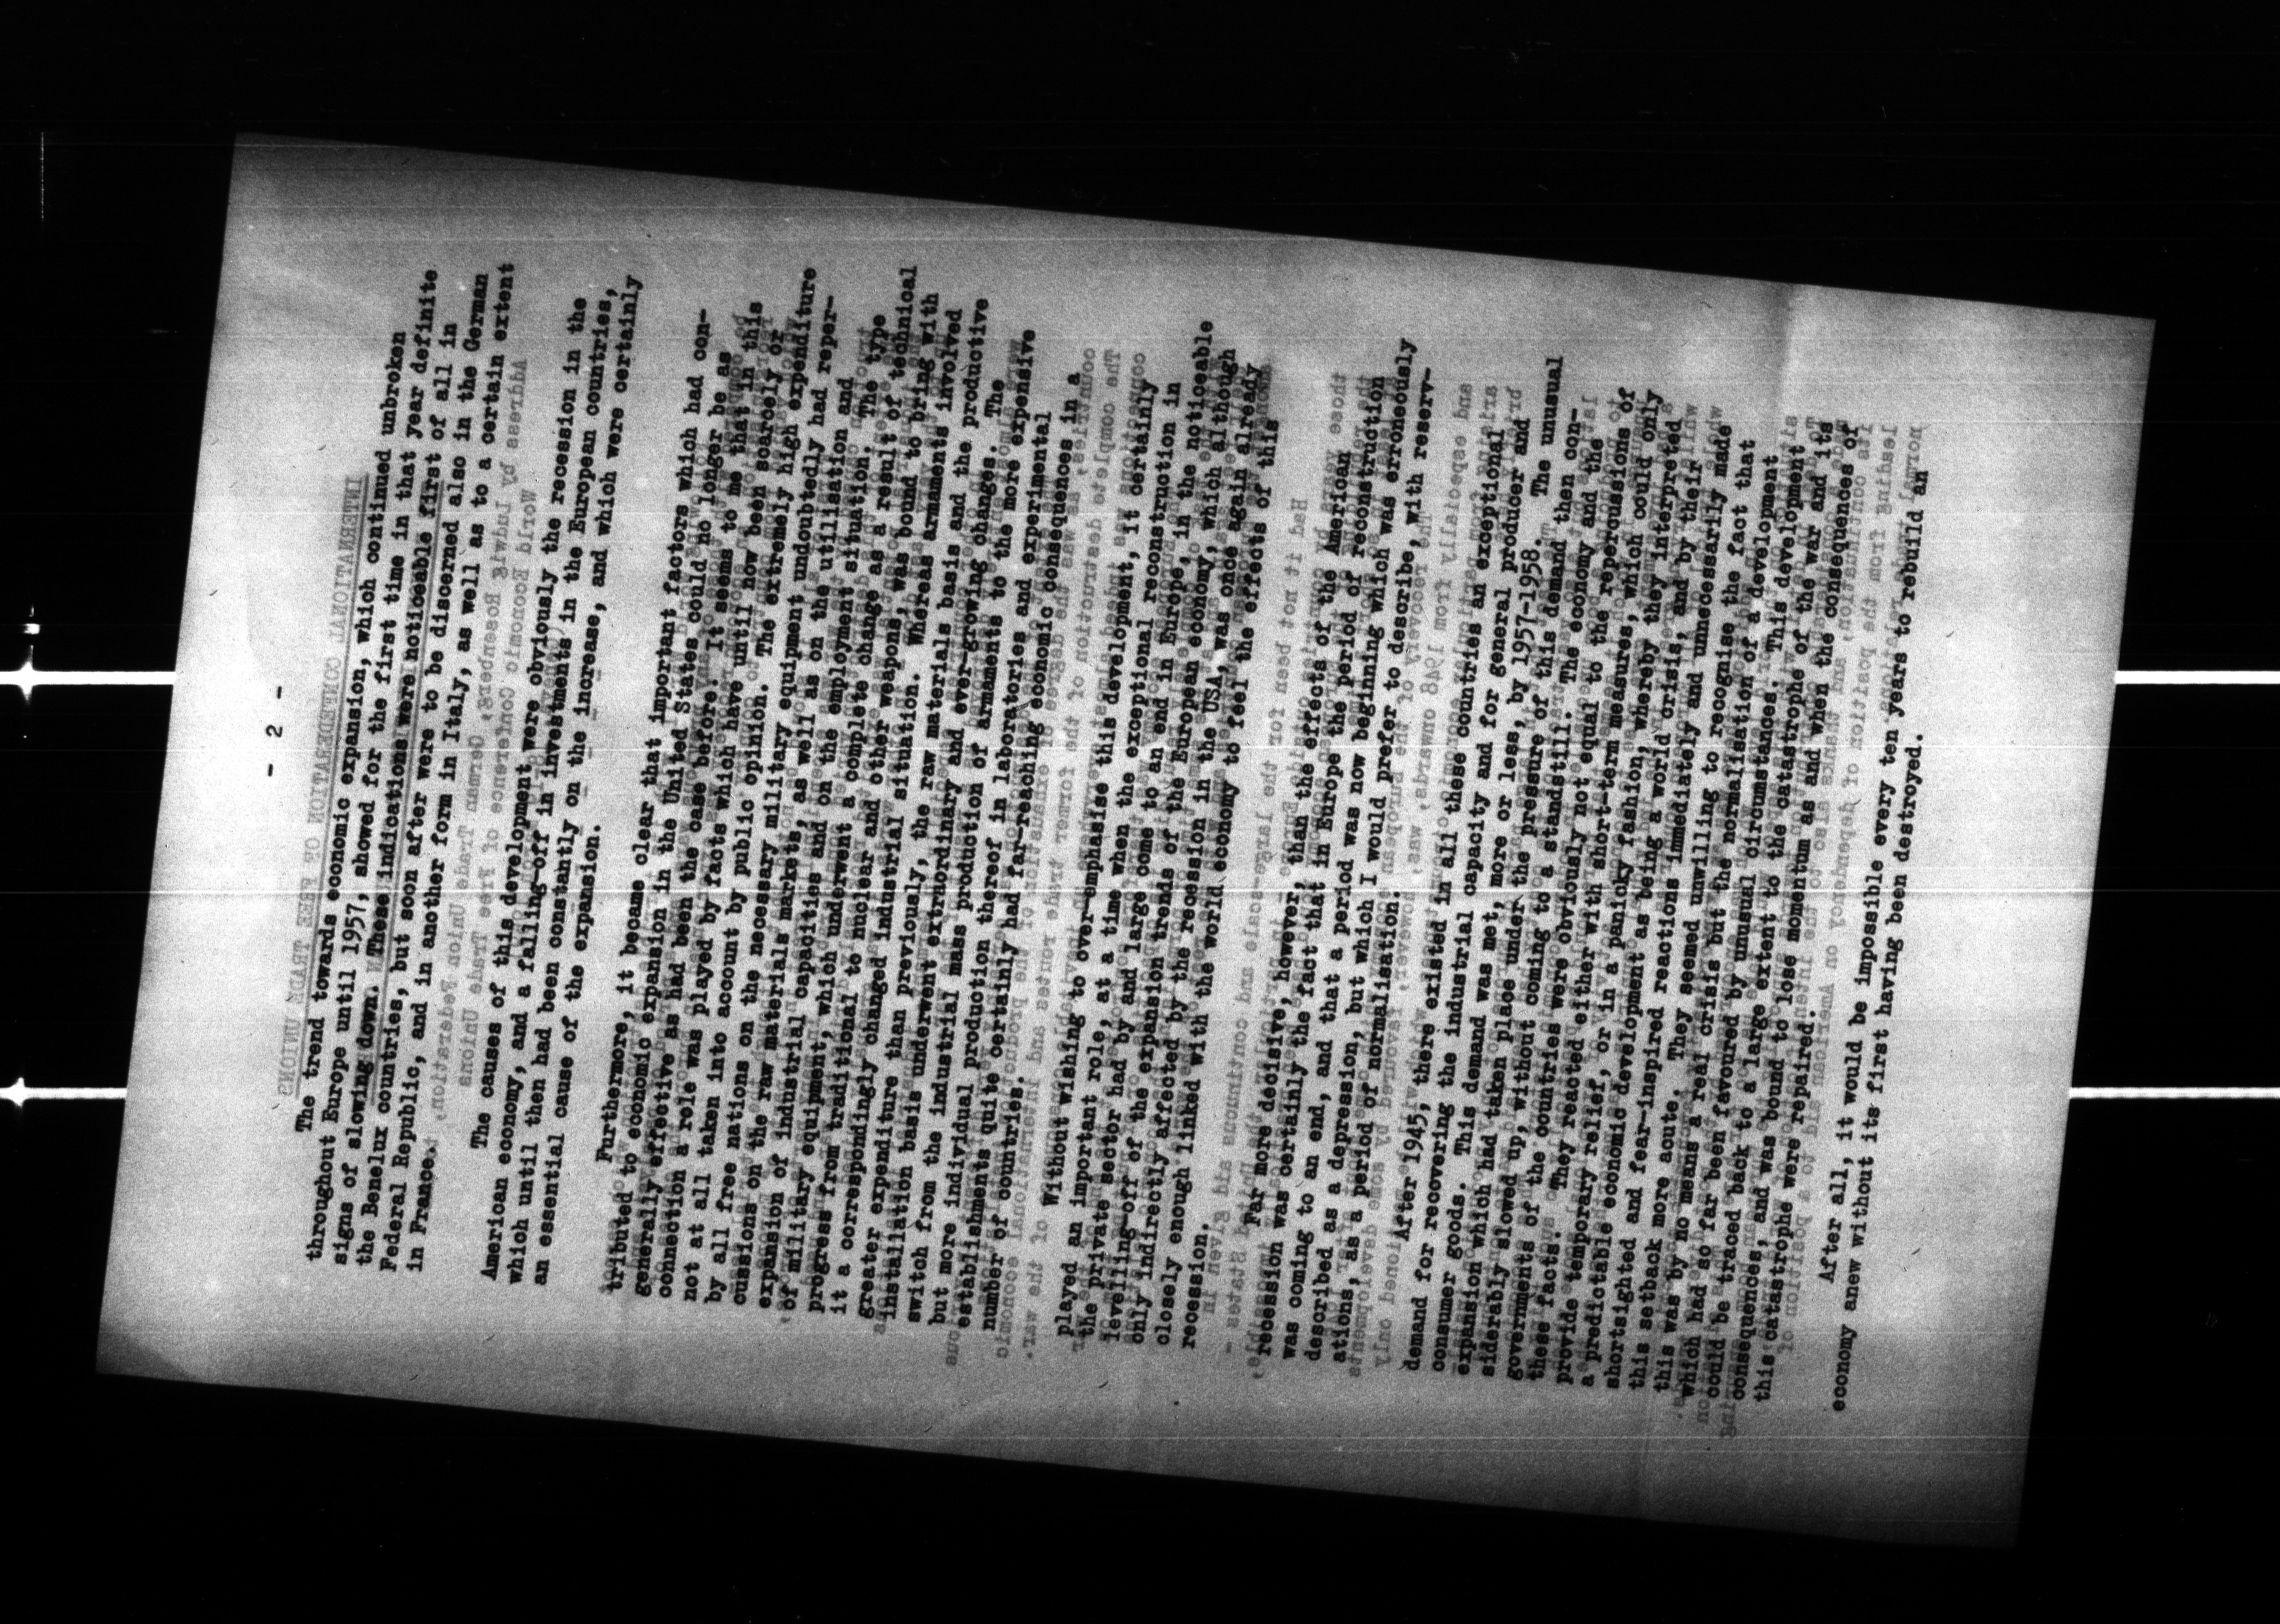 - 2 -
The trend towards economic expansion, which continued unbroken
throughout Europe until 1957, showed for the first time in that year definite
signs of slowing down. These indications were noticeable first of all in
the Benelux countries, but soon after were to be discerned also in the German
Federal Republic, and in another form in Italy, as well as to a certain extent
in France.
The causes of this development were obviously the recession in the
American economy, and a falling-off in investments in the European countries,
which until then had been constantly on the increase, and which were certainly
an essential cause of the expansion.
Furthermore, it became clear that important factors which had con-
tributed to economic expansion in the United States could no longer be as
generally effective as had been the case before. It seems to me that in this
connection a role was played by facts which have until now been scarcely or
not at all taken into account by public opinion. The extremely high expenditure
by all free nations on the necessary military equipment undoubtedly had reper-
cussions on the raw materials markets, as well as on the utilisation and
expansion of industrial capacities and on the employment situation. The type
of military equipment, which underwent a complete change as a result of technical
progress from traditional to nuclear and other weapons, was bound to bring with
it a correspondingly changed industrial situation. Whereas armaments involved
greater expenditure than previously, the raw materials basis and the productive
installation basis underwent extraordinary and ever-growing changes. The
switch from the industrial mass production of armaments to the more expensive
but more individual production thereof in laboratories and experimental
establishments quite certainly had far-reaching economic consequences in a
number of countries.
Without wishing to over-emphasise this development, it certainly
played an important role, at a time when the exceptional reconstruction in
the private sector had by and large come to an end in Europe, in the noticeable
levelling-off of the expansion trends of the European economy, which although
only indirectly affected by the recession in the USA, was once again already
closely enough linked with the world economy to feel the effects of this
recession.
Far more decisive, however, than the effects of the American
recession was certainly the fact that in Europe the period of reconstruction
was coming to an end, and that a period was now beginning which was erroneously
described as a depression, but which I would prefer to describe, with reserv-
ations, as a period of normalisation.
After 1945, there existed in all these countries an exceptional
demand for recovering the industrial capacity and for general producer and
consumer goods. This demand was met, more or less, by 1957-1958. The unusual
expansion which had taken place under the pressure of this demand then con-
siderably slowed up, without coming to a standstill. The economy and the
governments of the countries were obviously not equal to the repercussions of
these facts. They reacted either with short-term measures, which could only
provide temporary relief, or in a panicky fashion, whereby they interpreted
a predictable economic development as being a world crisis, and by their
shortsighted and fear-inspired reactions immediately and unnecessarily made
this setback more acute. They seemed unwilling to recognise the fact that
this was by no means a real crisis but the normalisation of a development
which had so far been favoured by unusual circumstances. This development
could be traced back to a large extent to the catastrophe of the war and its
consequences, and was bound to lose momentum as and when the consequences of
this catastrophe were repaired.
After all, it would be impossible every ten years to rebuild an
economy anew without its first having been destroyed.